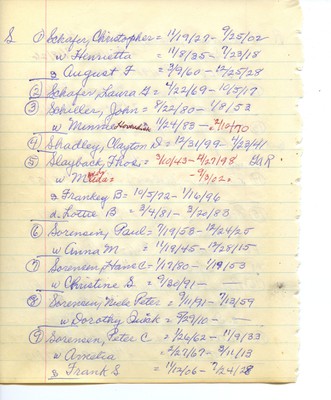 S ① Schafer, Christopher = 11/19/27 - 9/25/02
w Henrietta = 11/8/35 - 7/23/18
s August F = 3/3/60 - 12/25/28
② Schafer, Laura G = 1/22/69 - 10/5/17
③ Schuler, John = 8/22/80 - 1/8/53
w Minnie 11/24/83 - 2/12/70
④ Shadley, Clayton D = 12/31/99 - 11/23/41
⑤ Slayback, Thos = 3/10/43 - 4/27/98 GAR
w - 9/3/02
s Frankey B = 10/5/72 - 1/16/96
d. Lottie B = 3/4/81 - 3/20/83
⑥ Sorensen, Paul = 7/19/53 - 12/24/25
w Anna M = 11/19/45 - 12/28/15
⑦ Sorensen, Hans C = 1/17/80 - 1/19/53
w Christine D = 9/30/91 - —
⑧ Sorensen, Niels Peter = 7/11/91 - 7/13/59
w Dorothy Quick = 9/29/10 - —
⑨ Sorensen, Peter C = 1/26/62 - 11/9/33
w Amelia = 2/27/67 - 8/11/13
s Frank S = 11/12/06 - 7/24/28